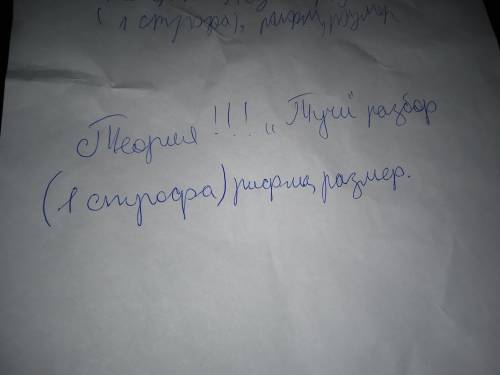 (1 строфа), рифма, размер
Теория!!! „Тучи" разбор
(1 строфа) рифма, размер.